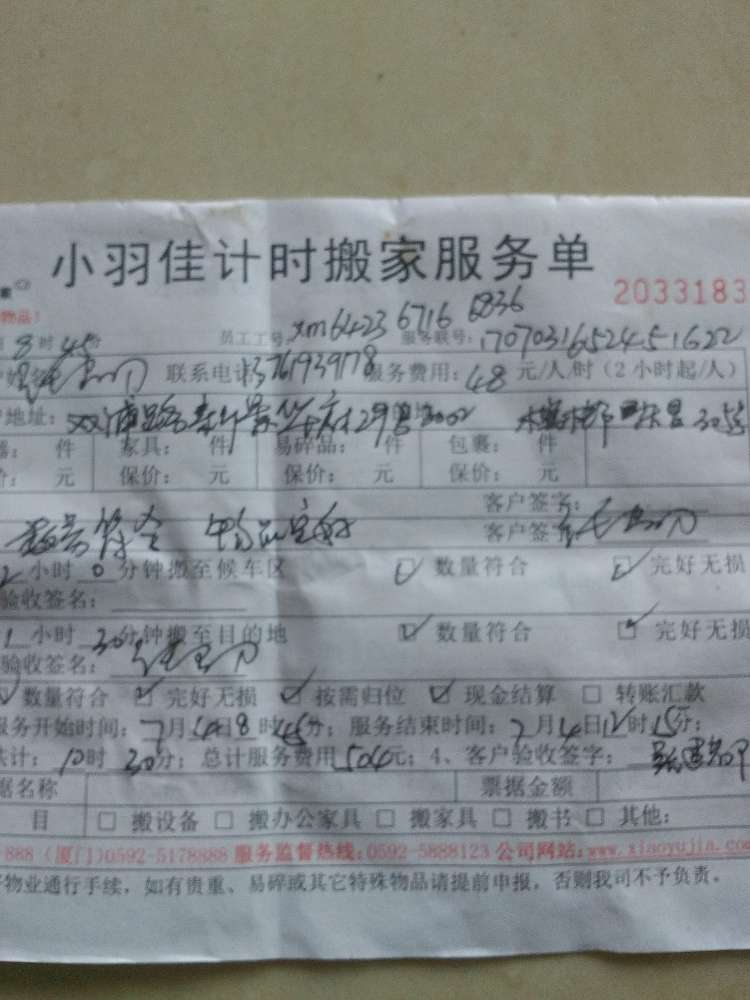 小羽佳计时搬家服务单
2033183
物品！
8时45分 员工工号：xm6423 6716 6836 服务联号：1707031652451622
联系电话 服务费用：48元/人/时（2小时起/人）
地址：
件 家具： 件 易碎品： 件 包裹： 件
元 保价： 元 保价： 元 保价： 元
客户签字：
数量符合 物品完好 客户签字
2小时0分钟搬至候车区 ☑数量符合 ☑完好无损
验收签名：
1小时30分钟搬至目的地 ☑数量符合 ☑完好无损
验收签名：
数量符合 ☑完好无损 ☑按需归位 ☑现金结算 □转账汇款
服务开始时间：7月4日8时45分；服务结束时间：7月4日12时15分；
共计：10时30分；总计服务费用504元；4、客户验收签字：
据名称 票据金额
目 □搬设备 □搬办公家具 □搬家具 □搬书 □其他：
888（厦门）0592-5178888 服务监督热线：0592-5888123 公司网站：www.xiaoyujia.co
物业通行手续，如有贵重、易碎或其它特殊物品请提前申报，否则我司不予负责。